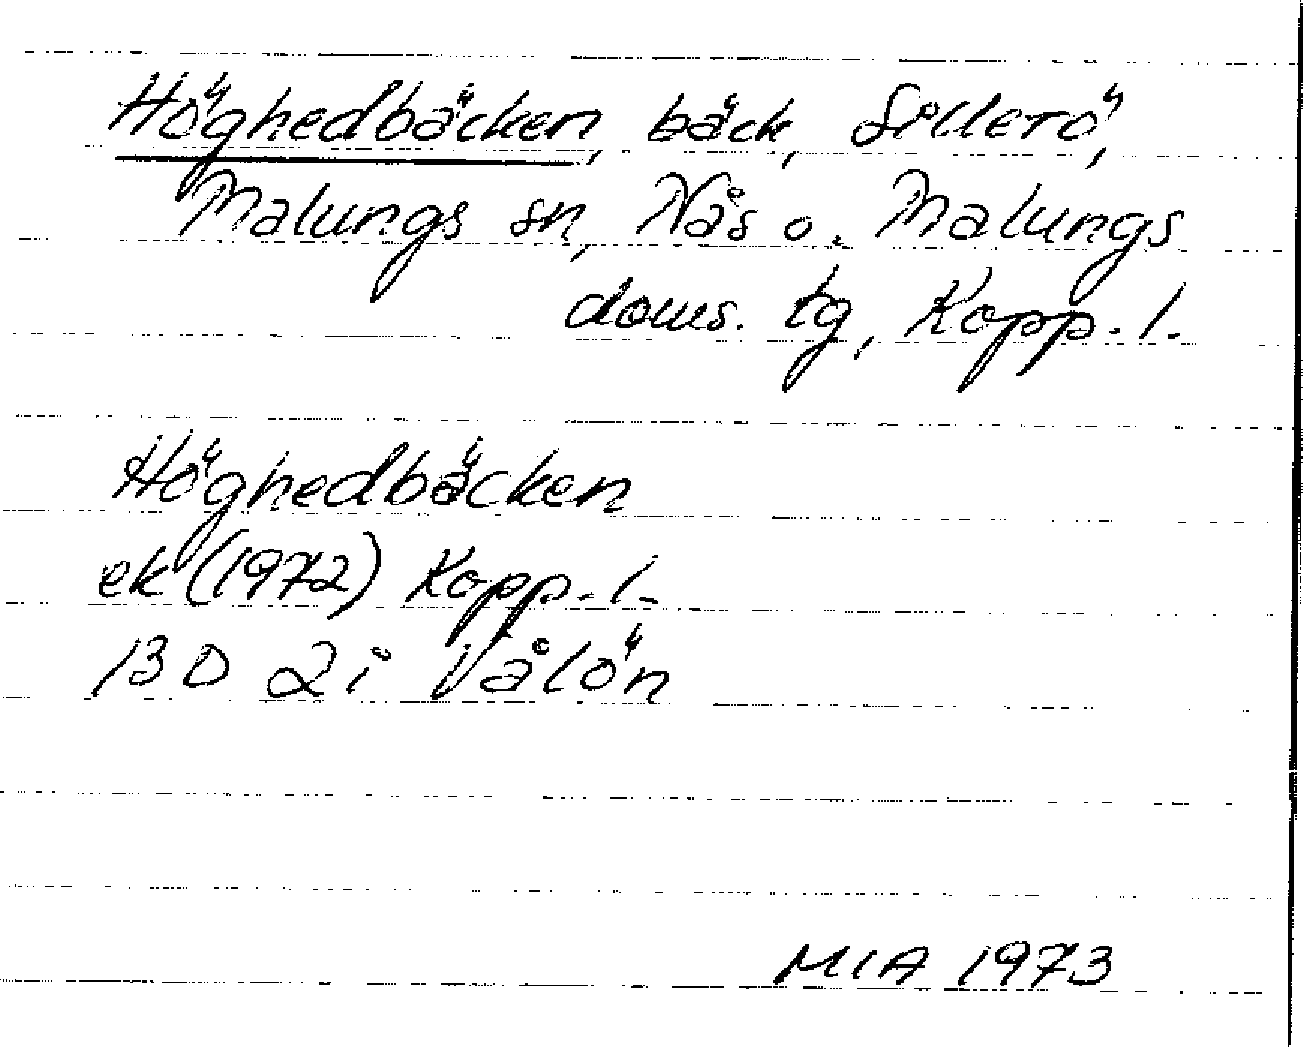 Höghedbäcken, bäck, Sollerö,
Malungs sn, Nås o. Malungs
doms. tg, Kopp. l.
Höghedbäcken
ek (1972) Kopp. l.
13 D 2 i Vålön
MIA 1973